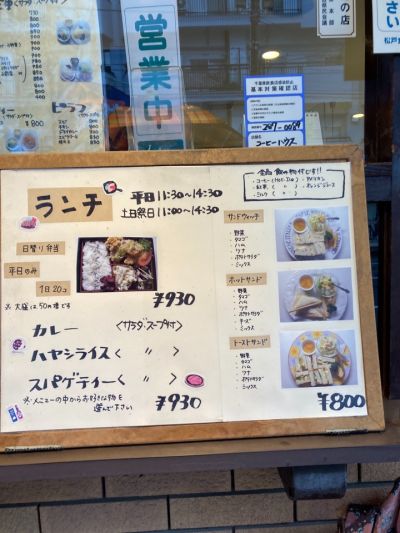 営業中
の店
さい
松戸
基本対策確認店
コーヒーハウス
ランチ
平日11:30~14:30
土日祭日11:00~14:30
全品飲み物付です!!
・コーヒー(Hot・Ice)
・アメリカン
・紅茶( 〃 )
・オレンジジュース
・ミルク( 〃 )
日替り弁当
平日のみ
1日20コ
¥930
※大盛は50円増です
カレー〈サラダ・スープ付〉
ハヤシライス〈 〃 〉
スパゲティー〈 〃 〉
¥930
※メニューの中からお好きな物を
選んで下さい
サンドウィッチ
・野菜
・タマゴ
・ハム
・ツナ
・ポテトサラダ
・ミックス
ホットサンド
・野菜
・タマゴ
・ハム
・ツナ
・ポテトサラダ
・チーズ
・ミックス
トーストサンド
・野菜
・タマゴ
・ハム
・ツナ
・ポテトサラダ
・ミックス
¥800